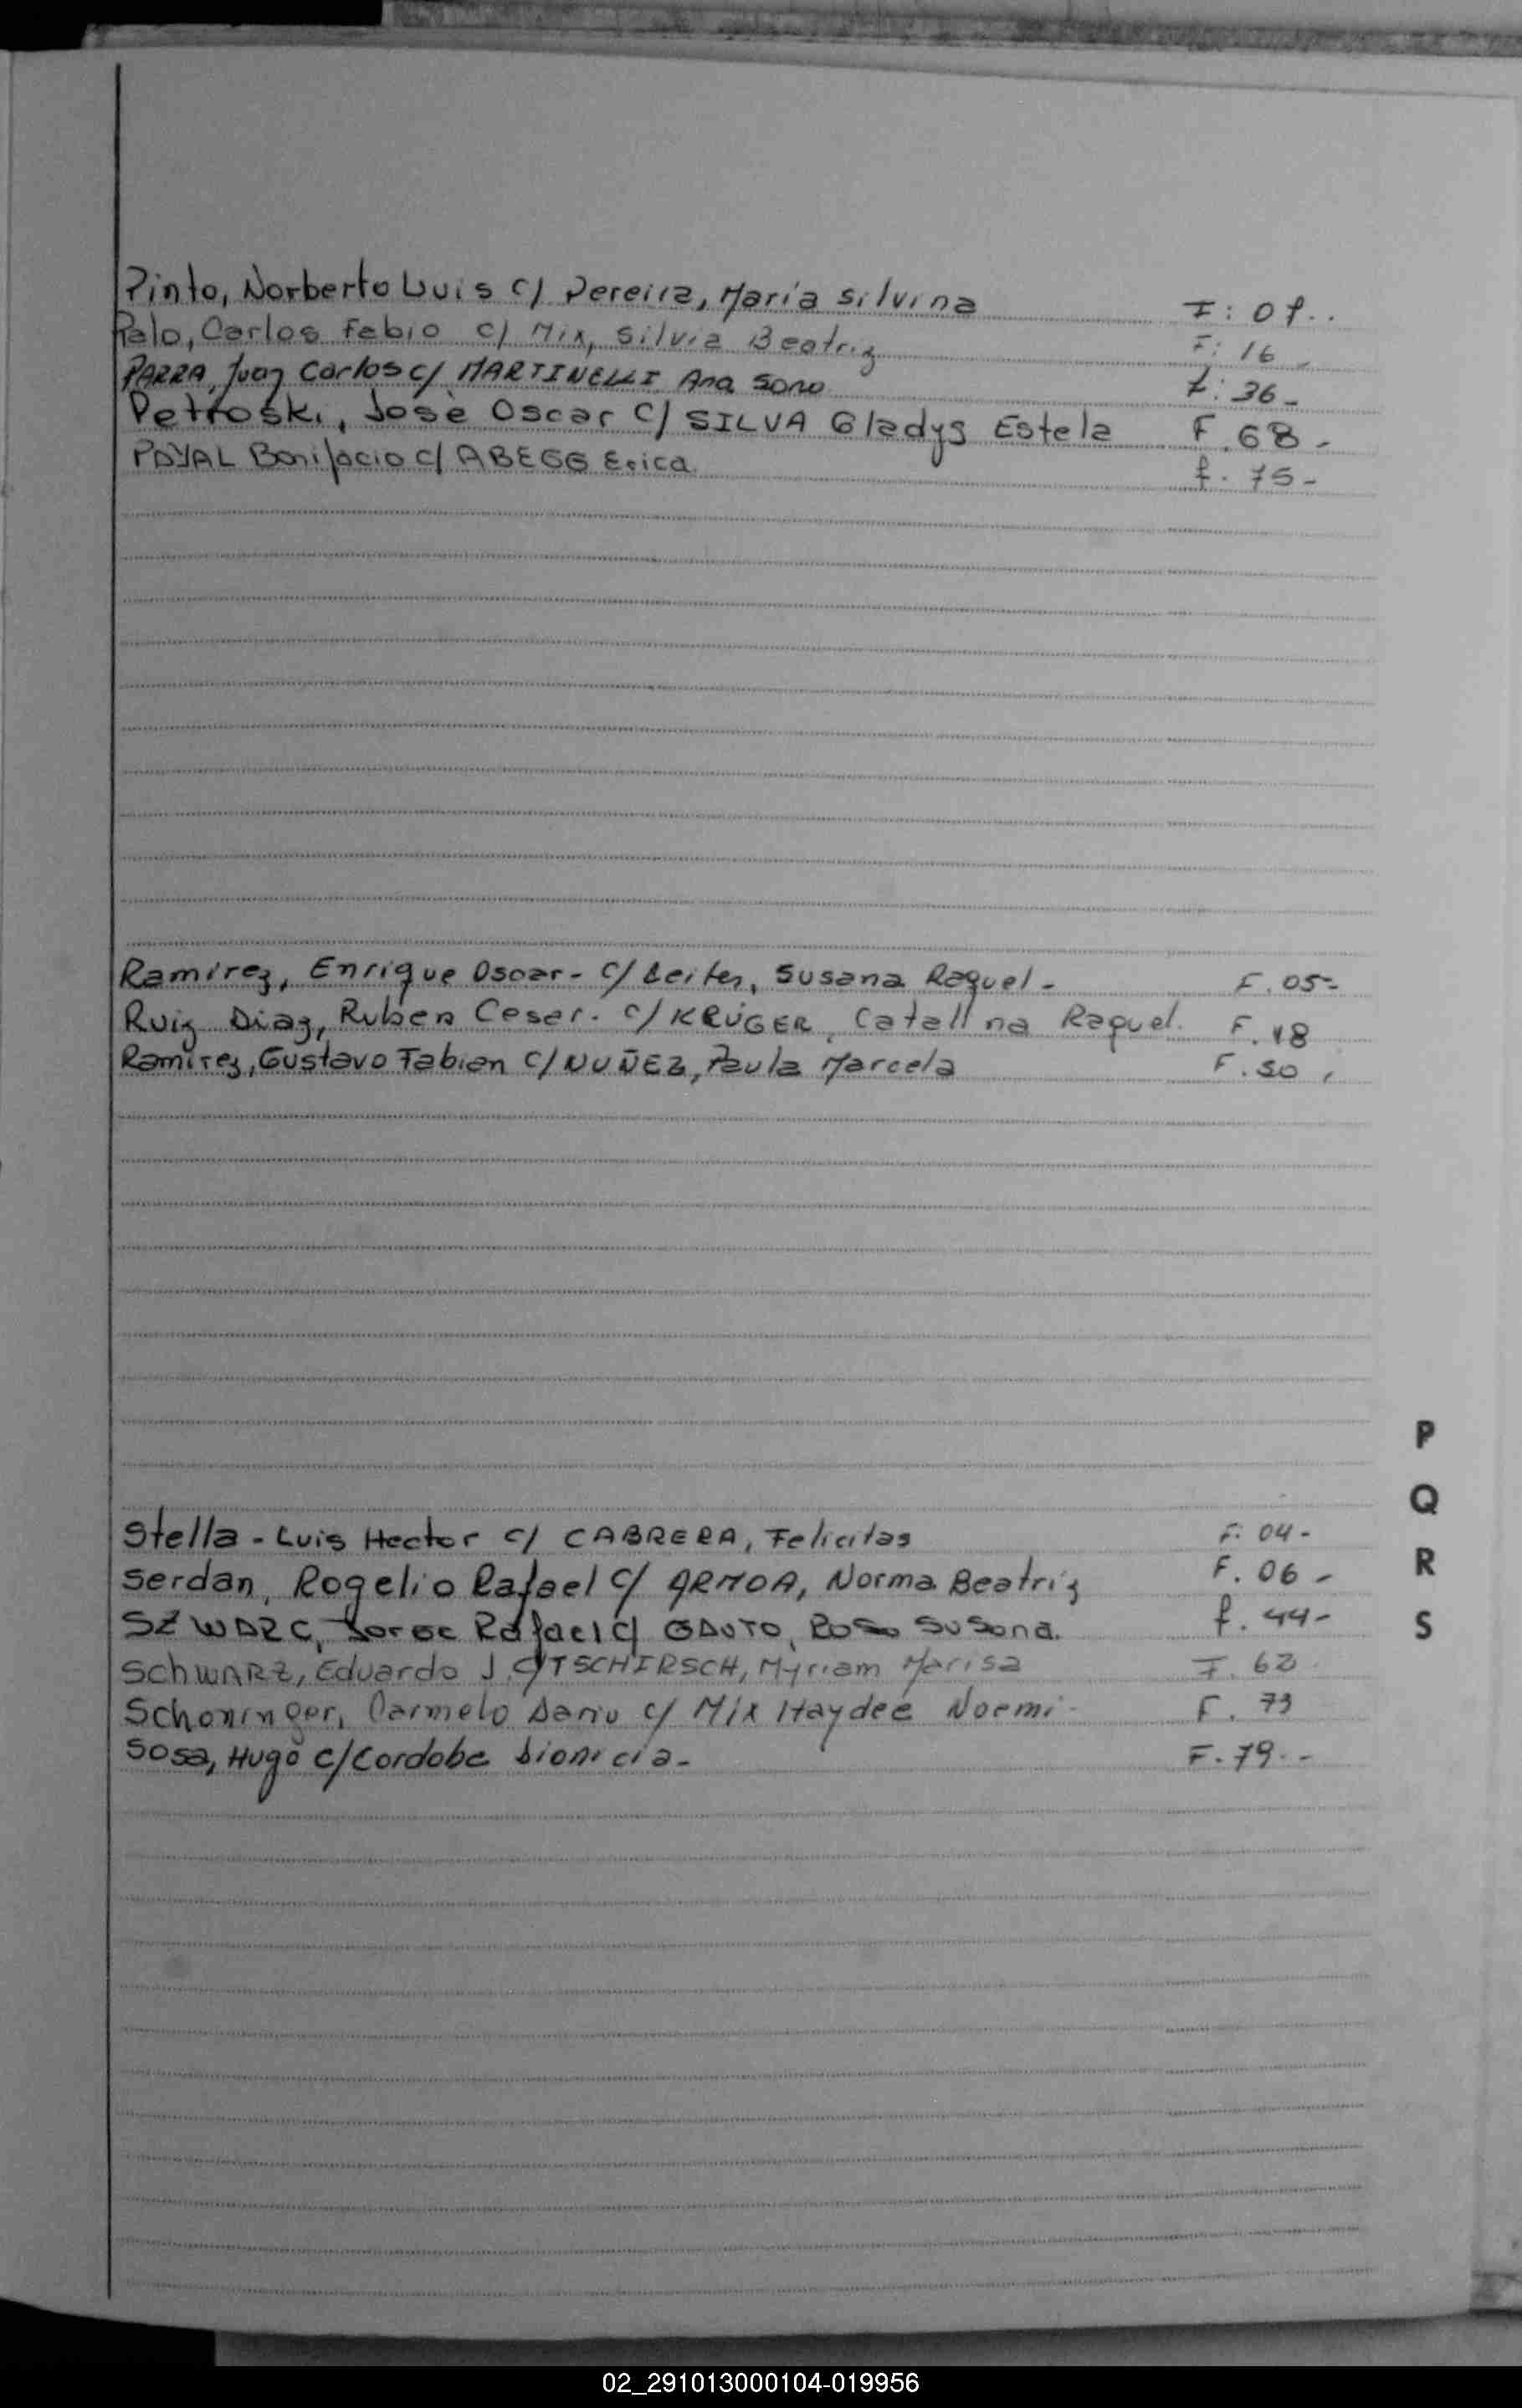 Pinto, Norberto Luis c/ Pereira, María Silvina F: 01..
Palo, Carlos Fabio c/ Mix, Silvia Beatriz F: 16 -
PARRA, Juan Carlos c/ MARTINELLI Ana Sono f: 36 -
Petroski, Josè Oscar c/ SILVA Gladys Estela F. 68 -
POYAL Bonifacio c/ ABEGG Erica f. 75 -
Ramirez, Enrique Oscar - c/ Leites, Susana Raquel - F. 05 -
Ruiz Diaz, Ruben Cesar. c/ KRÜGER, Catalina Raquel. F. 18
Ramirez, Gustavo Fabian c/ NUÑEZ, Paula Marcela F. 50
P
Q
R
S
Stella - Luis Hector c/ CABRERA, Felicitas F. 04 -
Serdan, Rogelio Rafael c/ ARMOA, Norma Beatriz F. 06 -
SZWARC, Jorge Rafael c/ GAUTO, Rosa Susana. f. 44 -
SCHWARZ, Eduardo J. c/ TSCHIRSCH, Myriam Marisa F. 62
Schoninger, Carmelo Dario c/ Mix Haydeé Noemi - F. 73
Sosa, Hugo c/ Cordoba Dionicia - F. 79. -
02_291013000104-019956